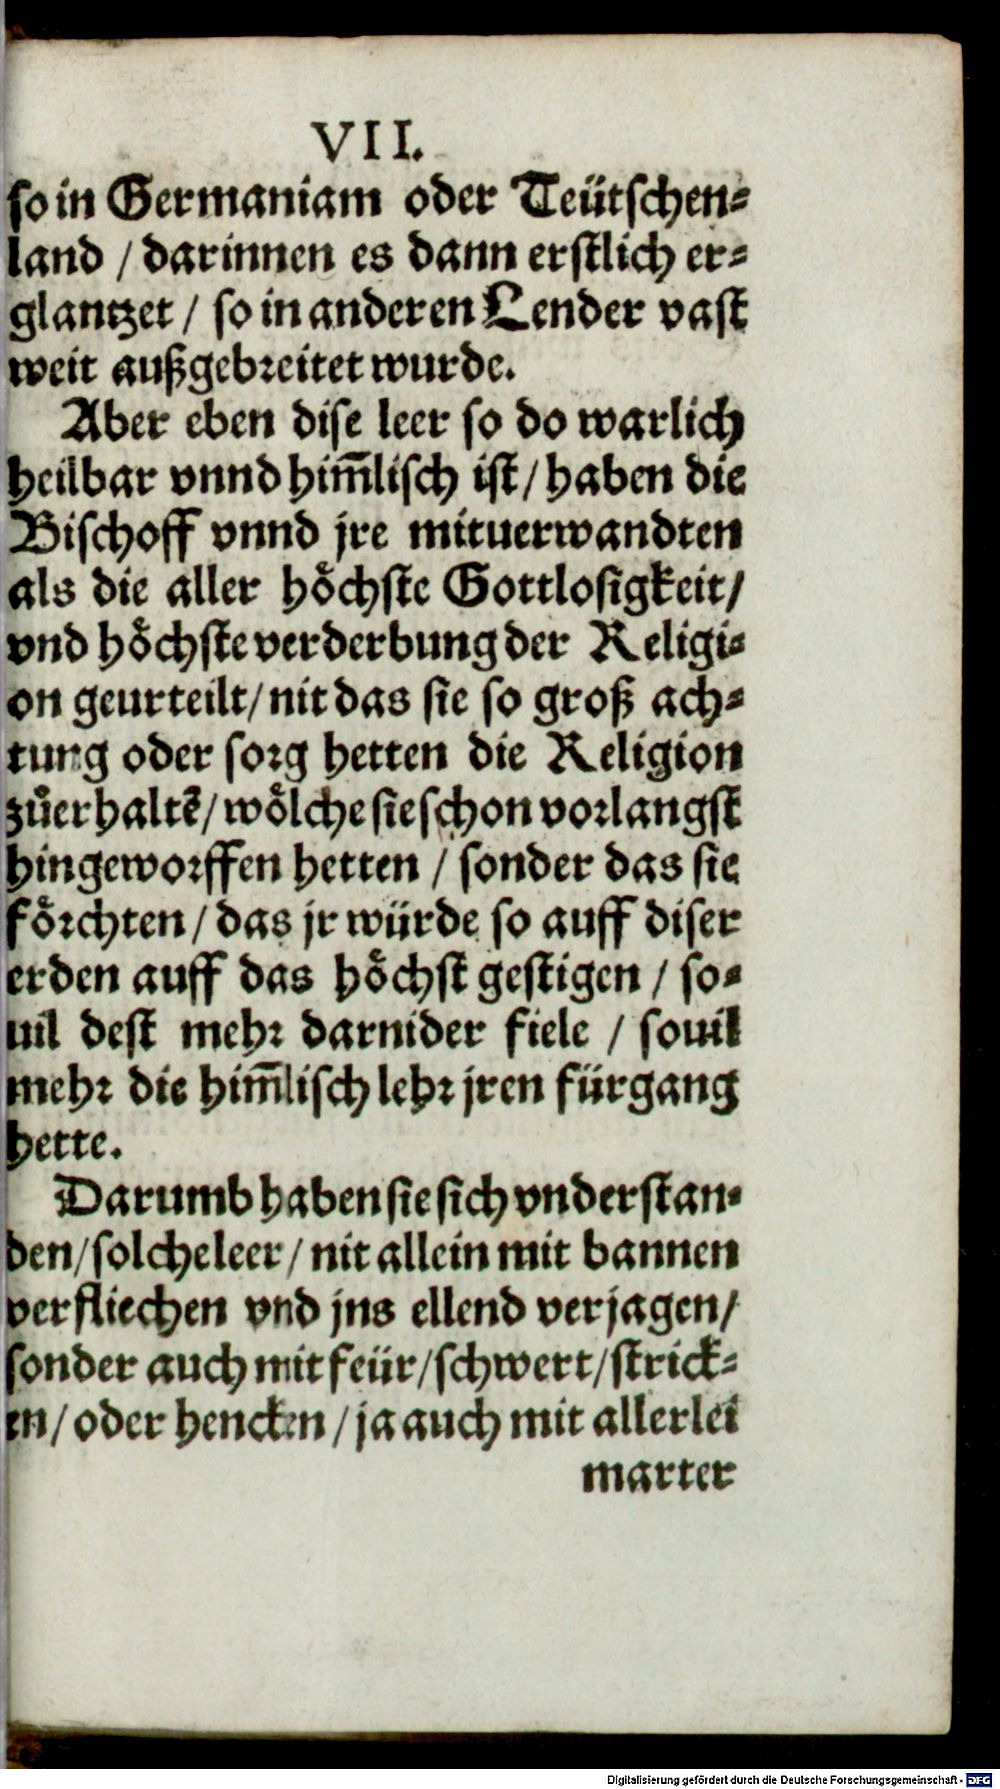 VII.
so in Germaniam oder Teütschen-
land / darinnen es dann erstlich er-
glantzet / so in anderen Lender vast
weit außgebreitet wurde.
Aber eben dise leer so do warlich
heilbar vnnd him̄lisch ist / haben die
Bischoff vnnd jre mituerwandten
als die aller hoͤchste Gottlosigkeit /
vnd hoͤchste verderbung der Religi-
on geurteilt / nit das sie so groß ach-
tung oder sorg hetten die Religion
zuͦerhaltē / woͤlche sie schon vorlangst
hingeworffen hetten / sonder das sie
foͤrchten / das jr würde so auff diser
erden auff das hoͤchst gestigen / so-
uil dest mehr darnider fiele / souil
mehr die him̄lisch lehr jren fürgang
hette.
Darumb haben sie sich vnderstan-
den / solche leer / nit allein mit bannen
verfliechen vnd jns ellend verjagen /
sonder auch mit feür / schwert / strick-
en / oder hencken / ja auch mit allerlei
marter
Digitalisierung gefördert durch die Deutsche Forschungsgemeinschaft - DFG